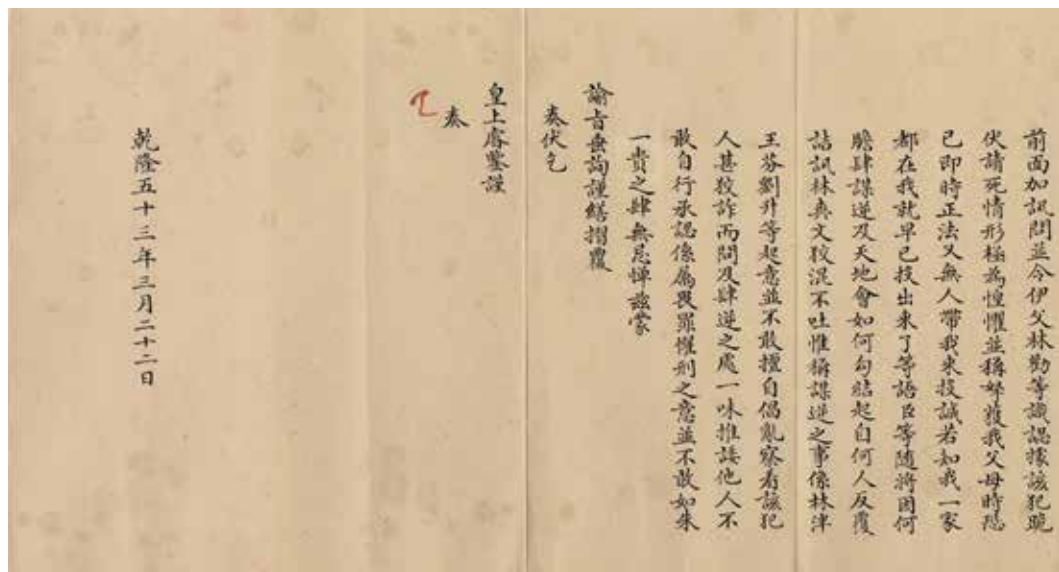 前面加訊問並令伊父林勸等識認據該犯跪
伏請死情形極為惶懼並稱拏獲我父母時隱
已即時正法又無人帶我來投誠若知我一家
都在我就早已投出來了等語臣等隨將因何
膽肆謀逆及天地會如何勾結起自何人反覆
詰訊林爽文狡混不吐惟稱謀逆之事係林泮
王芬劉升等起意並不敢擅自倡亂察看該犯
人甚狡詐而問及肆逆之處一味推諉他人不
敢自行承認係屬畏罪懼刑之意並不敢如朱
一貴之肆無忌憚茲蒙
諭旨垂詢謹繕摺覆
奏伏乞
皇上睿鑒謹
奏
乾隆五十三年三月二十二日